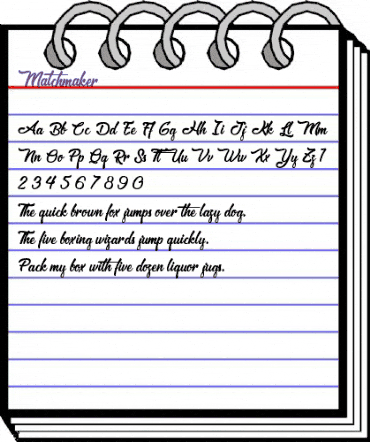 Matchmaker
Aa Bb Cc Dd Ee Ff Gg Hh Ii Jj Kk Ll Mm
Nn Oo Pp Qq Rr Ss Tt Uu Vv Ww Xx Yy Zz 1
2 3 4 5 6 7 8 9 0
The quick brown fox jumps over the lazy dog.
The five boxing wizards jump quickly.
Pack my box with five dozen liquor jugs.